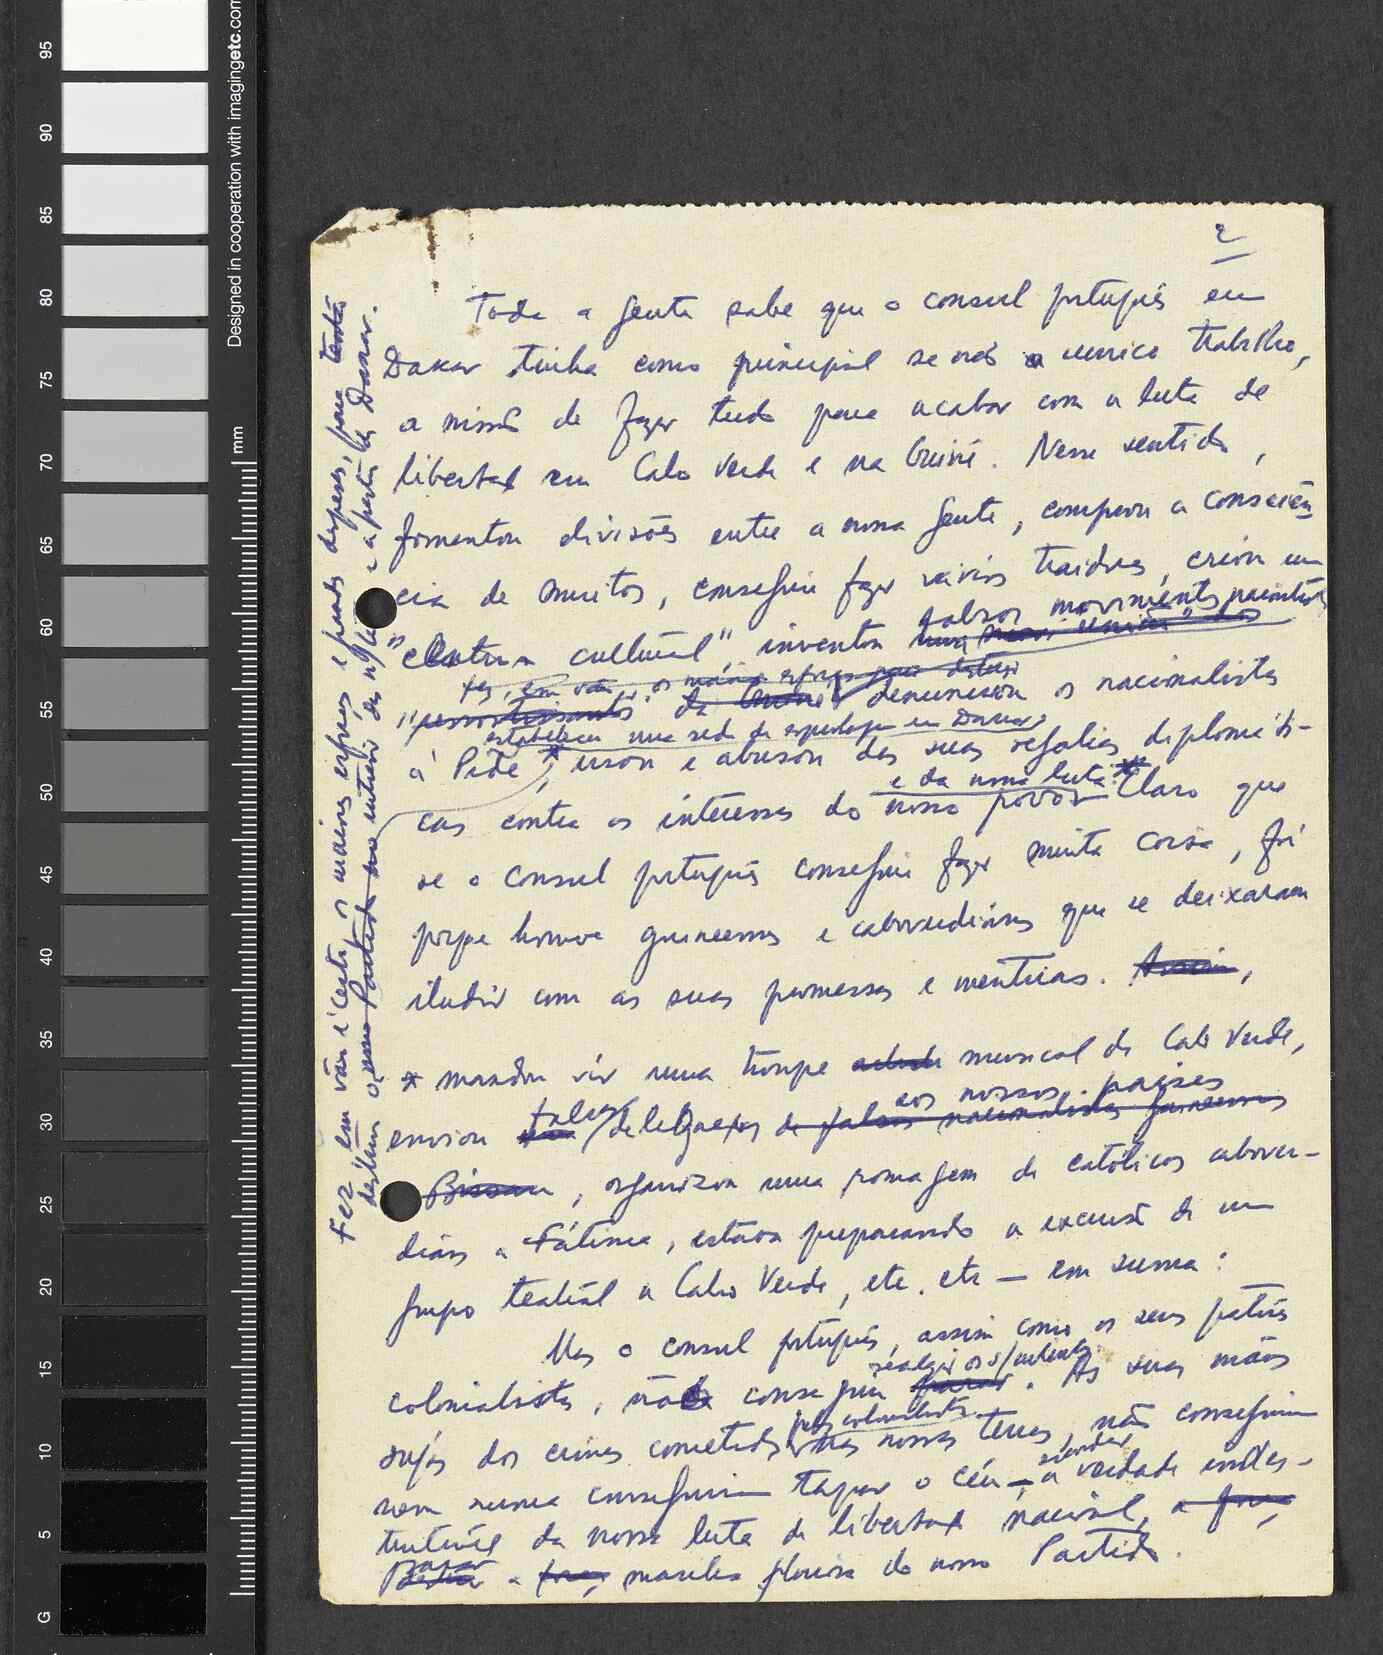 2
Toda a gente sabe que o consul português em
Dakar tinha como principal se não o unico trabalho,
a missão de fazer tudo para acabar com a luta de
libertação em Cabo Verde e na Guiné. Nesse sentido,
fomentou divisões entre a nossa gente, comprou a consciên
cia de muitos, conseguiu fazer vários traidores, criou um
falsos movimentos
"Centro cultural" inventou
fez, em vão, os maiores esforços para destruir
denunciou os nacionalistas
estabeleceu uma rede de espionagem em Dakar
à Pide *, usou e abusou das suas regalias diplomáti-
e da nossa luta.*
cas contra os interesses do nosso povo. Claro que
se o consul português conseguiu fazer muita coisa, foi
porque houve guineenses e caboverdianos que se deixaram
iludir com as suas promessas e mentiras. Assim,
* mandou vir uma troupe musical de Cabo Verde,
aos nossos países
enviou falsas delegações de falsos nacionalistas guineenses
Bissau, organizou uma romagem de católicos abover-
dianos a Fátima, estava preparando a excursão de um
grupo teatral a Cabo Verde, etc. etc — em suma:
Mas o consul português, assim como os seus patrões
realizar os s/intentos
colonialistas, não conseguiu parar. As suas mãos
pelos colonialistas
sujas dos crimes cometidos nas nossas terras, não conseguiram
esconder
nem nunca conseguiriam tapar o céu — a verdade indes-
trutível da nossa luta de libertação nacional, a força,
parar
a força, marcha gloriosa do nosso Partido.
Fez em vão é certo os maiores esforços e grandes despesas, para tentar
destruir o nosso Partido no interior das n/fileiras e a partir de Dakar.
Designed in cooperation with imagingetc.com
mm
95
90
85
80
75
70
65
60
55
50
45
40
35
30
25
20
15
10
5
G